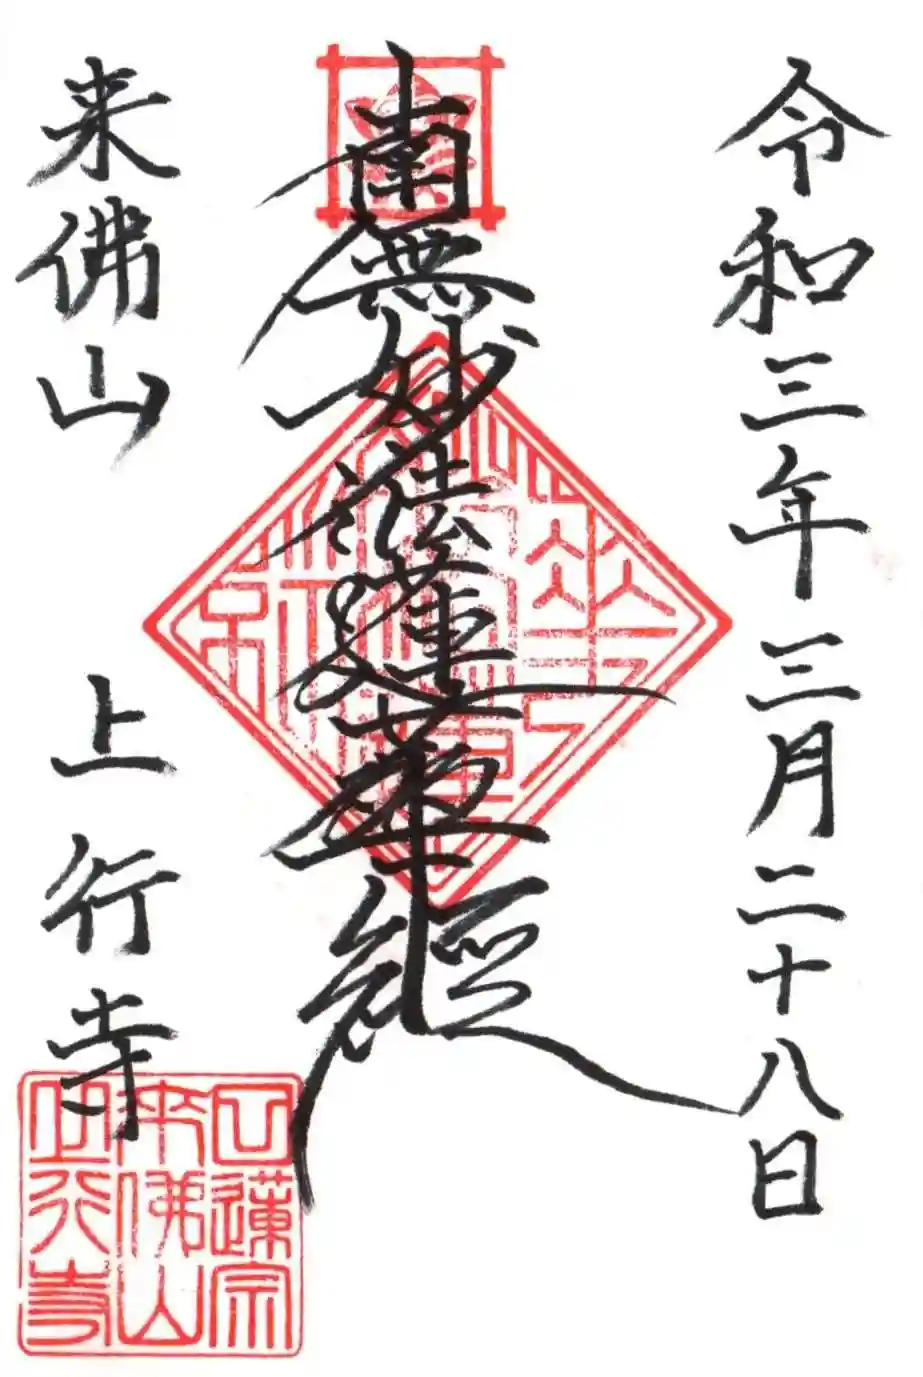 令和三年三月二十八日
南無妙法蓮華経
来佛山
上行寺
日蓮宗
来佛山
上行寺